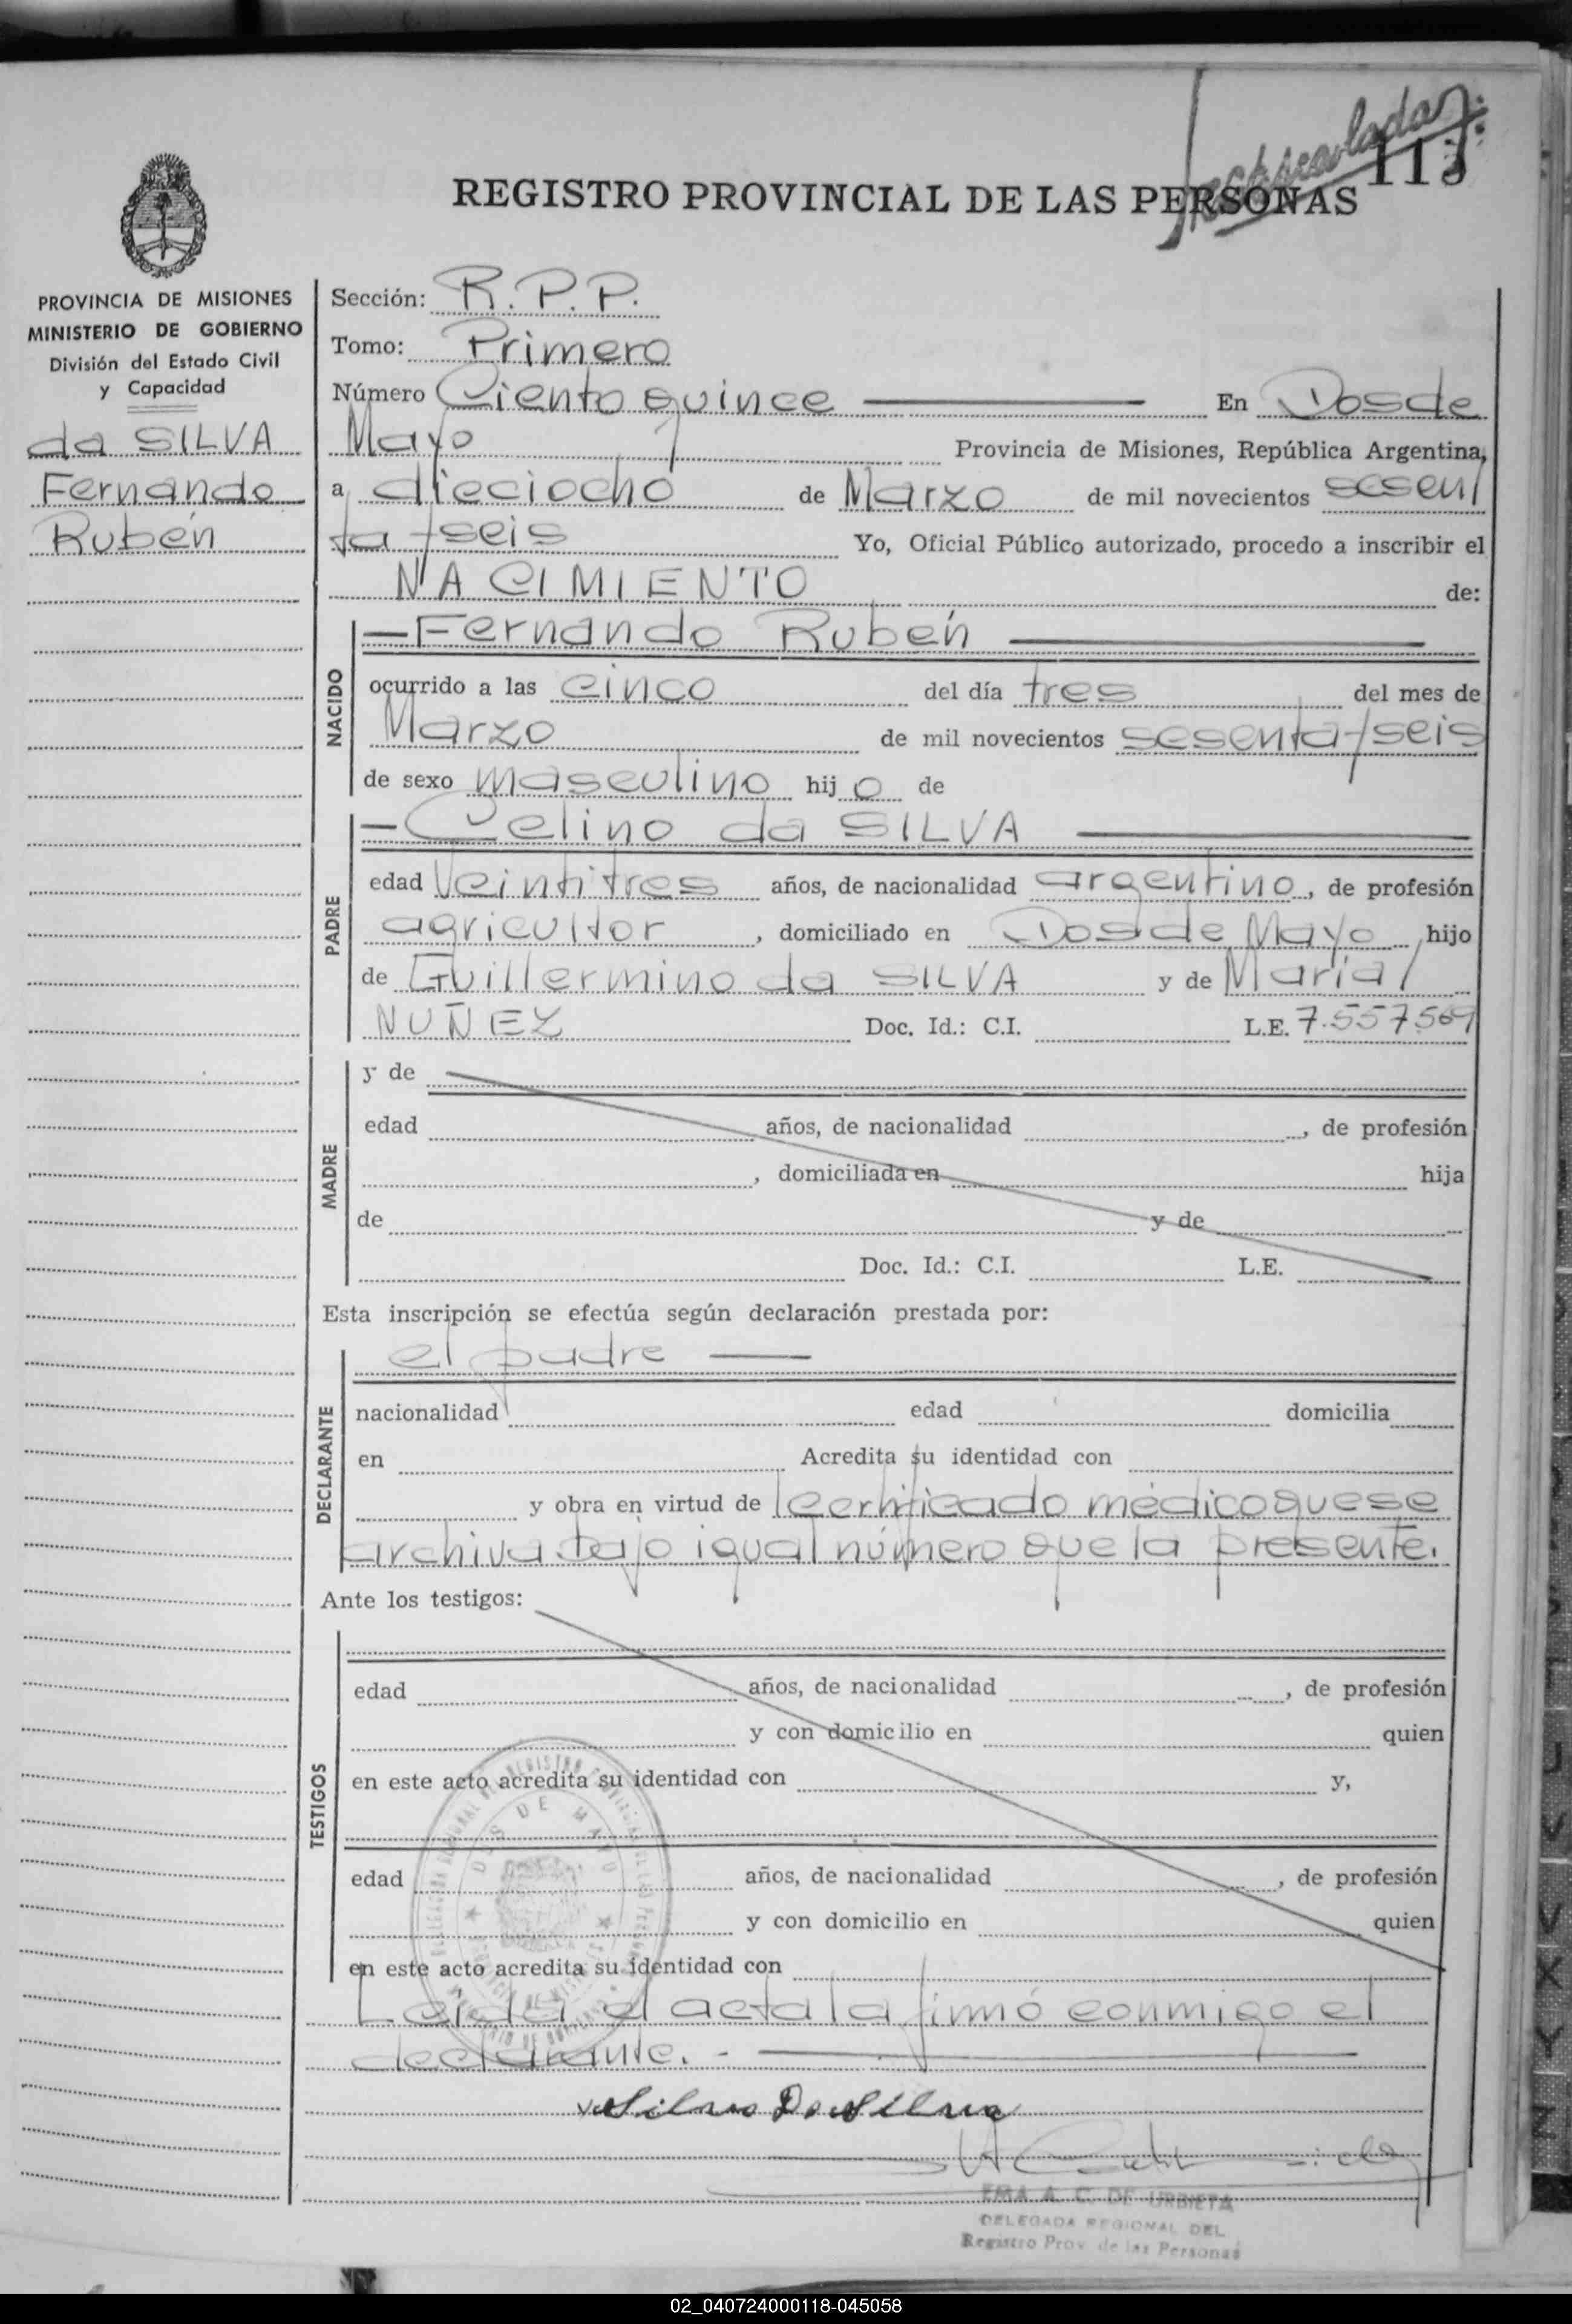 115
REGISTRO PROVINCIAL DE LAS PERSONAS
PROVINCIA DE MISIONES
MINISTERIO DE GOBIERNO
División del Estado Civil
y Capacidad
da SILVA
Fernando
Rubén
Sección: R.P.P.
Tomo: Primero
Número Ciento quince En Dos de
Mayo Provincia de Misiones, República Argentina,
a dieciocho de Marzo de mil novecientos sesen/
ta y seis Yo, Oficial Público autorizado, procedo a inscribir el
NACIMIENTO de:
NACIDO
Fernando Rubén
ocurrido a las cinco del día tres del mes de
Marzo de mil novecientos sesenta y seis
de sexo masculino hijo de
PADRE
Celino da SILVA
edad veintitres años, de nacionalidad argentino, de profesión
agricultor, domiciliado en Dos de Mayo, hijo
de Guillermino da SILVA y de María/
NUÑEZ Doc. Id.: C.I. L.E. 7.557.569
MADRE
y de
edad años, de nacionalidad , de profesión
, domiciliada en hija
de y de
Doc. Id.: C.I. L.E.
Esta inscripción se efectúa según declaración prestada por:
DECLARANTE
el padre
nacionalidad edad domicilia
en Acredita su identidad con
y obra en virtud de certificado médico que se
archiva bajo igual número que la presente.
Ante los testigos:
TESTIGOS
edad años, de nacionalidad , de profesión
y con domicilio en quien
en este acto acredita su identidad con y,
edad años, de nacionalidad , de profesión
y con domicilio en quien
en este acto acredita su identidad con
DOS DE MAYO
Leida el acta la firmó conmigo el
declarante.-
EMA A. C. DE URBIETA
DELEGADA REGIONAL DEL
Registro Prov. de las Personas
02_040724000118-045058